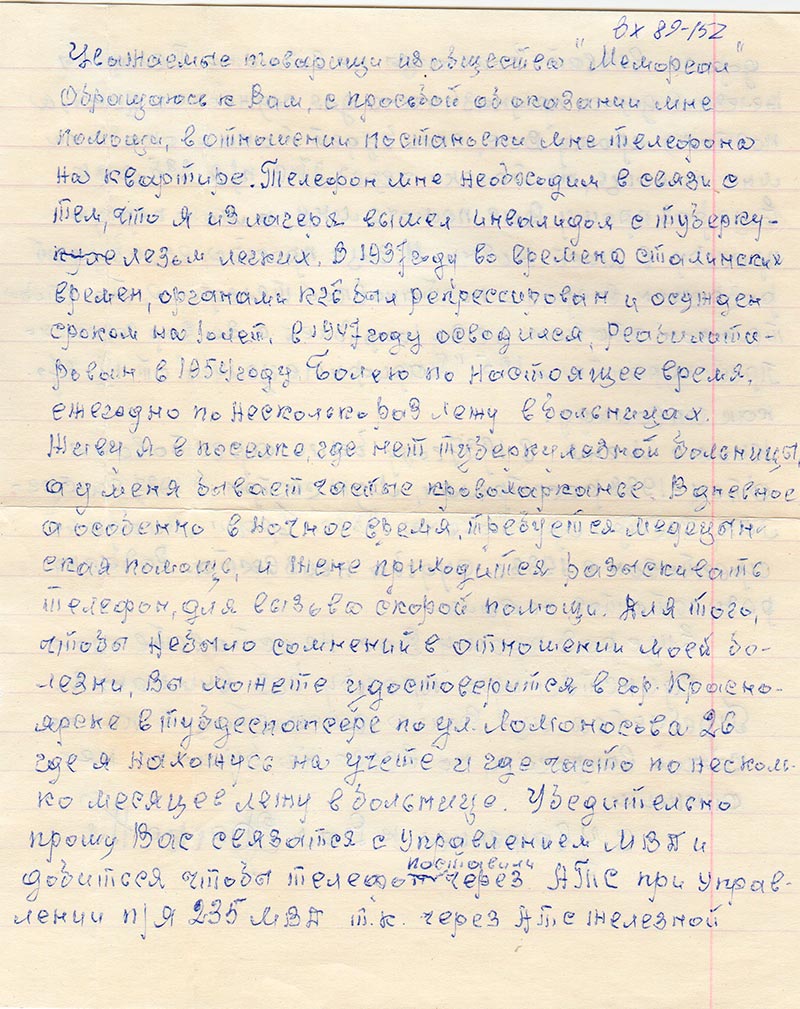 вх 89-152
Уважаемые товарищи из общества "Мемореал"
Обращаюсь к Вам, с просьбой об оказании мне
помощи, в отношении постановки мне телефона
на квартире. Телефон мне необходим в связи с
тем, что я из лагеря вышел инвалидом с туберку-
лезом легких. В 1937 году во времена сталинских
времен, органами КГБ был репрессирован и осужден
сроком на 10 лет, в 1947 году осводился, реабилити-
рован в 1954 году. Болею по настоящее время,
ежегодно по несколько раз лежу в больницах.
Живу я в поселке, где нет туберкулезной больницы,
а у меня бывает частые кровохарканье В дневное
а особенно в ночное время, требуется медецын-
ская помощь, и жене приходится разыскивать
телефон, для вызова скорой помощи. Для того,
чтобы небыло сомнений в отношении моей бо-
лезни, Вы можете удостоверится в гор. Красно-
ярске в тубдеспансере по ул. Ломоносова 26
где я нахожусь на учете и где часто по несколь-
ко месяцев лежу в больнице. Убедительно
прошу Вас связатся с Управлением МВД и
добится чтобы телефон поставили через АТС при Управ-
лении п/я 235 МВД т.к. через АТС железной